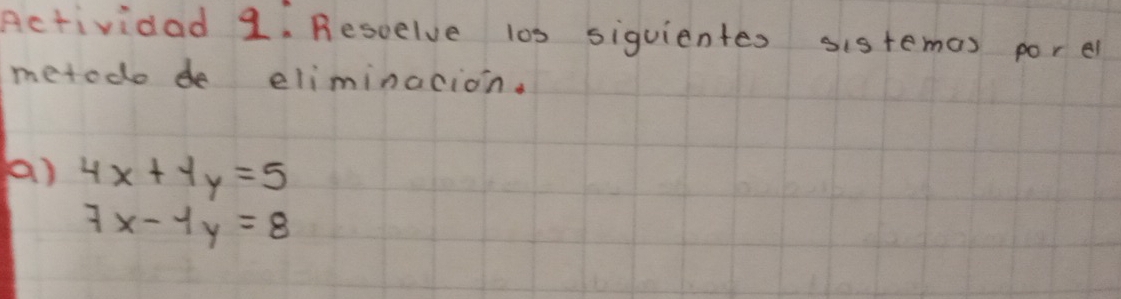 Actividad 1. Resuelve los siguientes sistemas por el
metodo de eliminación.
a) 4x + 1y = 5
7x - 1y = 8